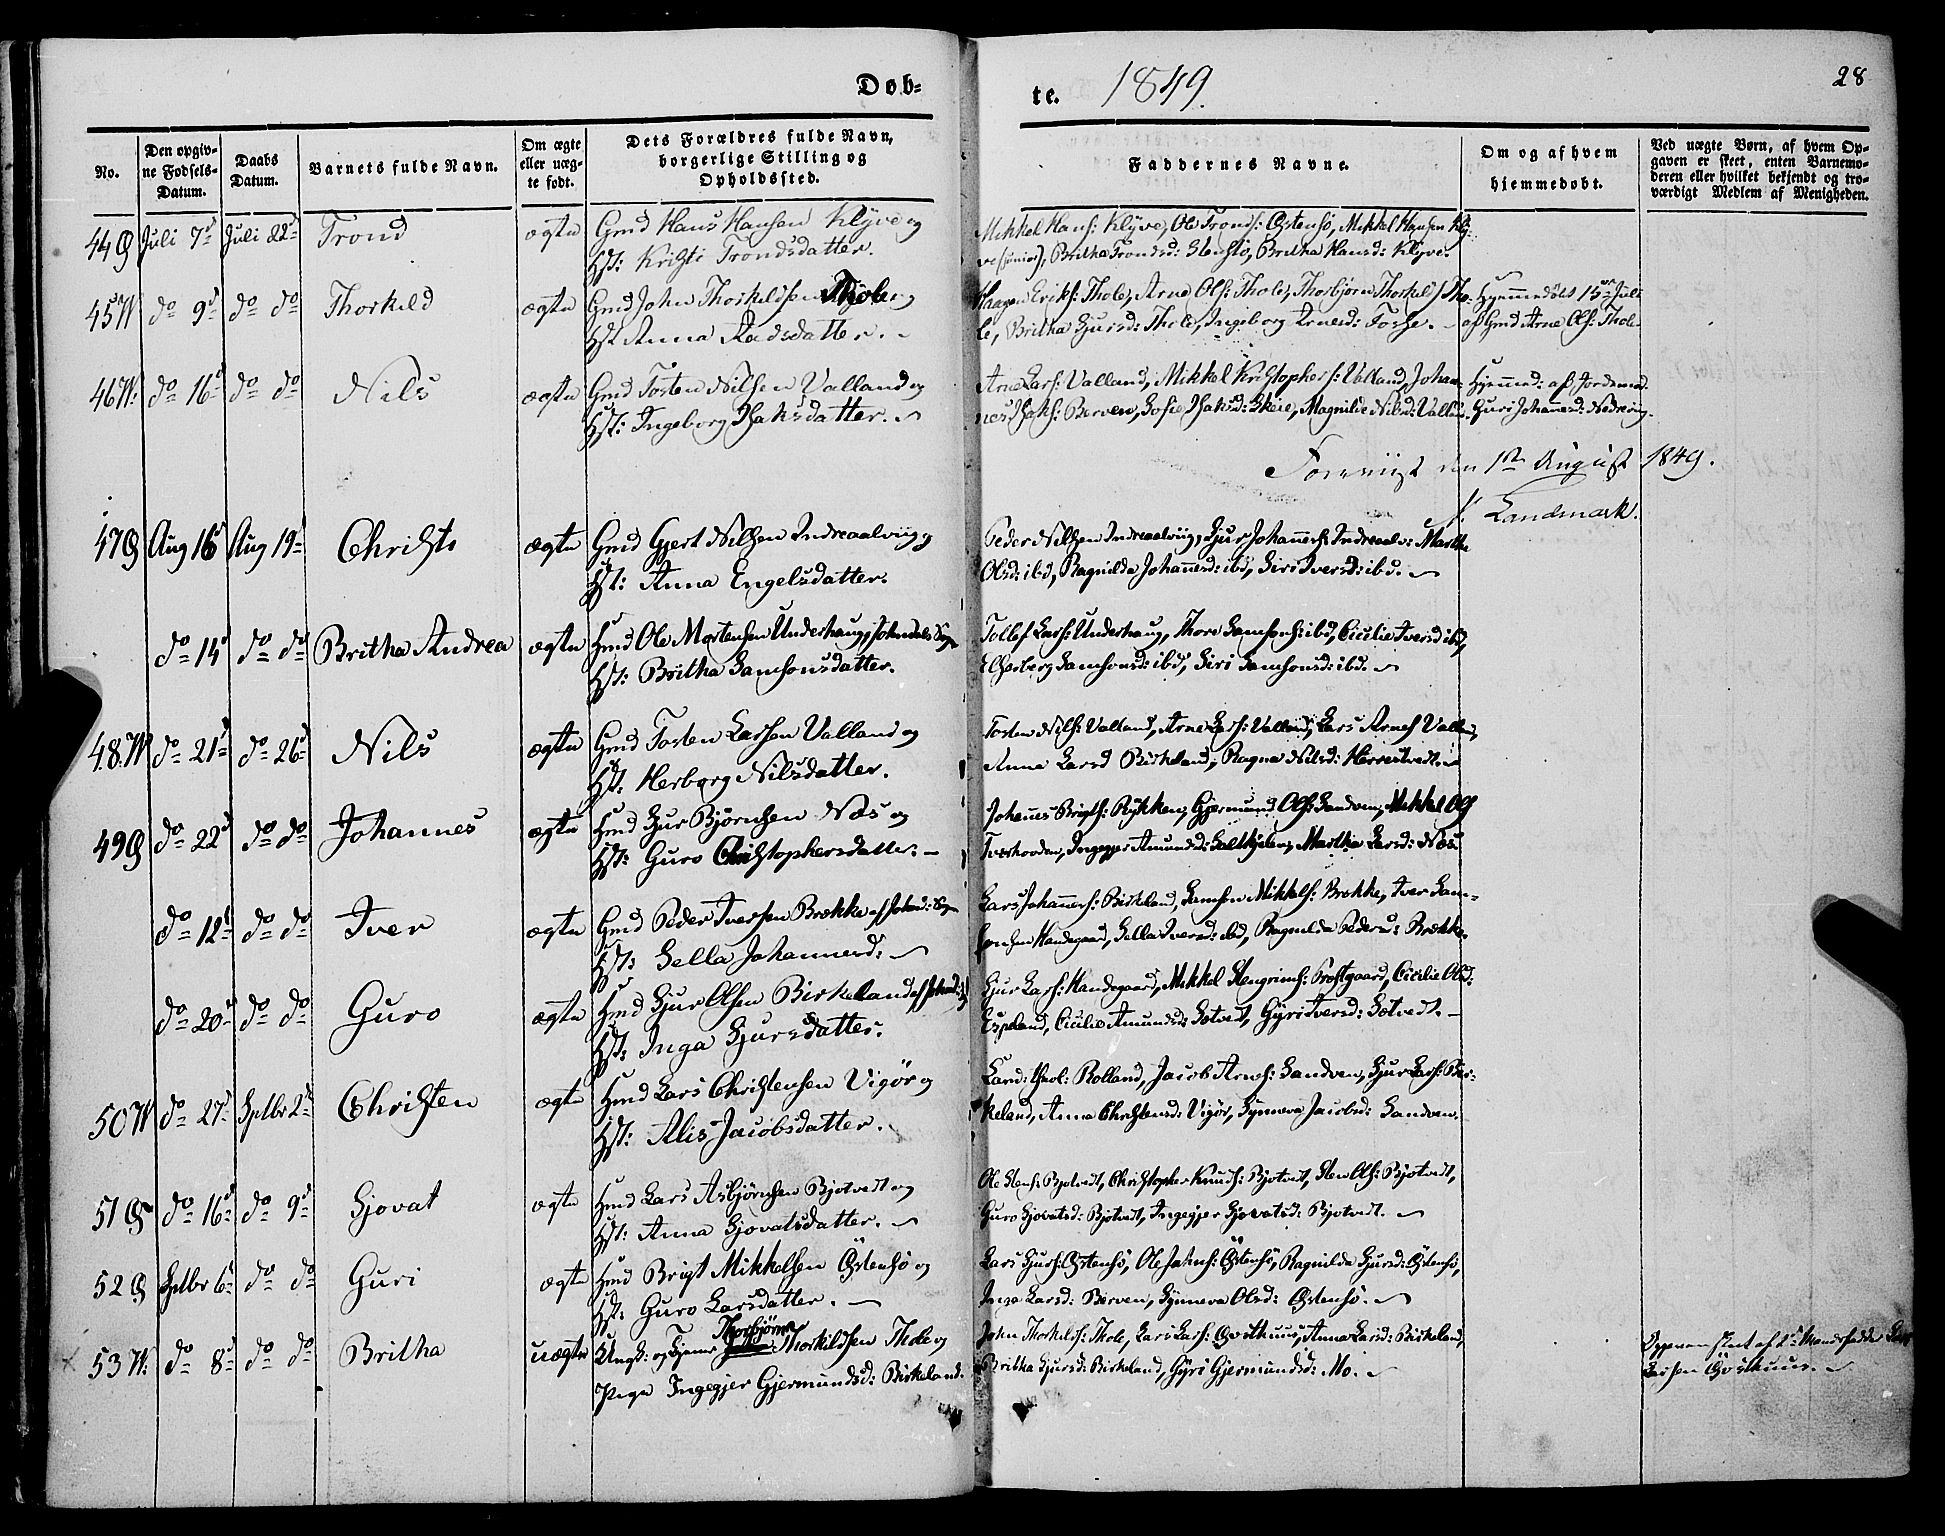 Døb-
te. 1849.
28
No.
Den opgiv-
ne Fødsels-
Datum.
Daabs
Datum.
Barnets fulde Navn.
Om ægte
eller uæg-
te født.
Dets Forældres fulde Navn,
borgerlige Stilling og
Opholdssted.
Faddernes Navne.
Om og af hvem
hjemmedøbt.
Ved uægte Børn, af hvem Op-
gaven er skeet, enten Barnemo-
deren eller hvilket bekjendt og tro-
værdigt Medlem af Menigheden.
44 Juli 7d Juli 22d Trond ægte Gmd Hans Hansen Klyve og
Hst: Kristi Trondsdatter.
Mikkel Hans: Klyve, Ole Tronds: Østensø, Mikkel Hansen Kly-
ve (junior), Britha Trondsd: Stensø, Britha Hansd: Klyve.
45 W do 9d do do Thorkeld ægte Gmd John Thorkeldsen Thole og
Hst Anna Aadsdatter. –
Haagen Eriks: Thole, Arne Ols: Thole, Thorbjørn Thorkelds: Tho-
le, Britha Sjursd: Thole, Ingeborg Arnesd: Fosse. – 
Hjemmedøbt 15de Juli
af Gmd Arne Ols: Thole
46 W: do 16d do do Nils ægte Gmd Torsten Nilsen Valland og
Hst: Ingeborg Isaksdatter. –
Arne Lars: Valland, Mikkel Kristophers: Valland, Johan-
nes Isaks: Berven, Sofie Isaksd: Skeie, Magnilde Nilsd: Vallan
Hjemmed: af Jordemod.
Guri Johannesd: Nedrevig.
Foreviist den 1ste August 1849.
Landmark.
47 Aug 16 Aug 19d Christi ægte Gmd Gjert Nilsen Indreaalvig og
Hst: Anna Engelsdatter.
Peder Nilsen Indreaalvig, Sjur Johanness: Indreaalv: Martha
Olsd: ibd, Ragnilda Johannesd: ibd, Siri Iversd: ibd. –
do 14d do do Britha Andrea ægte Hmd Ole Mortensen Underhaug, Jondals Sogn
Hst: Britha Samsonsdatter.
Tollef Lars: Underhaug, Thore Samsons: ibd, Cicilie Iversd ibd,
Herborg Samsonsd: ibd, Siri Samsonsd: ibd. –
48. W do 21d do 26d Nils ægte Gmd Torsten Larsen Valland og
Hst: Herborg Nilsdatter.
Torsten Nils: Valland, Arne Lars: Valland, Lars Arnes Valland,
Anna Larsd Birkeland, Ragna Nilsd: Herrestvedt. –
49 do 22d do do Johannes ægte Hmd Sjur Bjørnsen Næs og
Hst: Guro Christophersdatter. –
Johannes Brigts: Rykken, Gjermund Ols: Sandven, Mikkel Ols
Tvershovden, Ingegjer Amundsd: Salthjelen, Martha Larsd: Næs.
do 12d do do Iver ægte Gmd Peder Iversen Brekke af Jond: Sogn
Hst: Sella Johannesd: –
Lars Johanness: Birkeland, Samson Mikkels: Brekke, Iver Sam-
sonsen Handegaard, Sella Iversd: ibd, Ragnilda Pedersd: Brekke.
do 20d do do Guro ægte Hmd Sjur Olsen Birkeland af Jond:
Hst: Inga Sjursdatter.
Sjur Lars: Handegaard, Mikkel Stengrims: Prestgaard, Cicilie Olsd:
Espeland, Cicilie Amundsd: Sætvedt, Gyri Iversd: Sætvedt. –
50 W do 27d Septbr 2d Christen ægte Hmd Lars Christensen Vigør og
Hst: Alis Jacobsdatter.
Cand: theol: Rolland, Jacob Arnes: Sandven, Sjur Lars: Bir-
keland, Anna Christensd: Vigør, Synneva Jacobsd: Sandven.
51 do 16d do 9d Sjovat ægte Hmd Lars Asbjørnsen Bjotvedt og
Hst: Anna Sjovatsdatter. –
Ole Stens: Bjotvedt, Christopher Knuds: Bjotvedt, Sten Ols: Bjotvedt,
Guro Sjovatsd: Bjotvedt, Ingegjer Sjovatsd: Bjotvedt. –
52 Septbr 6d do do Guri ægte Hmd Brigt Mikkelsen Østensø og
Hst: Guro Larsdatter. –
Lars Sjurs: Østensø, Ole Johns: Østensø, Ragnilda Sjursd: Østensø,
Inga Larsd: Berven, Synneva Olsd: Østensø. –
53 W: do 8d do do Britha uægte Ungk: og Tjener Thorbjørn Thorkildsen Thole og
Pige Ingegjer Gjermundsd: Birkeland.
John Thorkelds: Thole, Lars Lars: Gjøsthuus, Anna Larsd: Birkeland,
Britha Sjursd: Birkeland, Gyri Gjermundsd: Mo. –
Opgaven skeet af 2d Mandsfadder Lars
Larsen Gjøsthuus. –